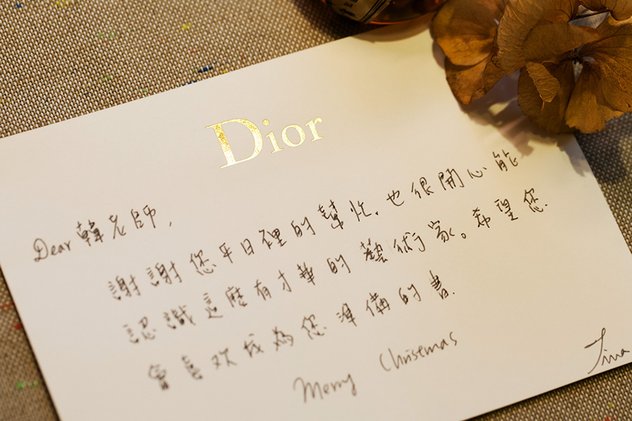 Dior
Dear 韓老師,
謝謝您平日裡的幫忙,也很開心能
認識這麼有才華的藝術家。希望您
會喜欢我為您準備的書.
Merry Chrisemas
Tina